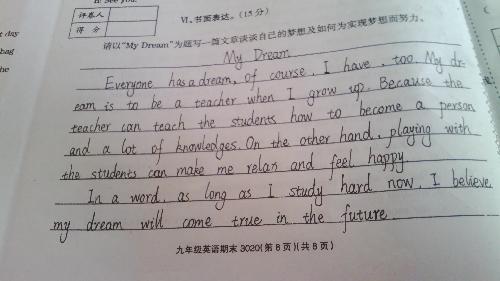 B: See you.
t day
bag
he
评卷人
得 分
Ⅵ. 书面表达。(15分)
请以"My Dream"为题写一篇文章谈谈自己的梦想及如何为实现梦想而努力。
My Dream
Everyone has a dream, of course, I have, too. My dr-
eam is to be a teacher when I grow up. Because the
teacher can teach the students how to become a person
and a lot of knowledges. On the other hand, playing with
the students can make me relax and feel happy.
In a word, as long as I study hard now, I believe
my dream will come true in the future.
九年级英语期末 3020(第 8 页)(共 8 页)